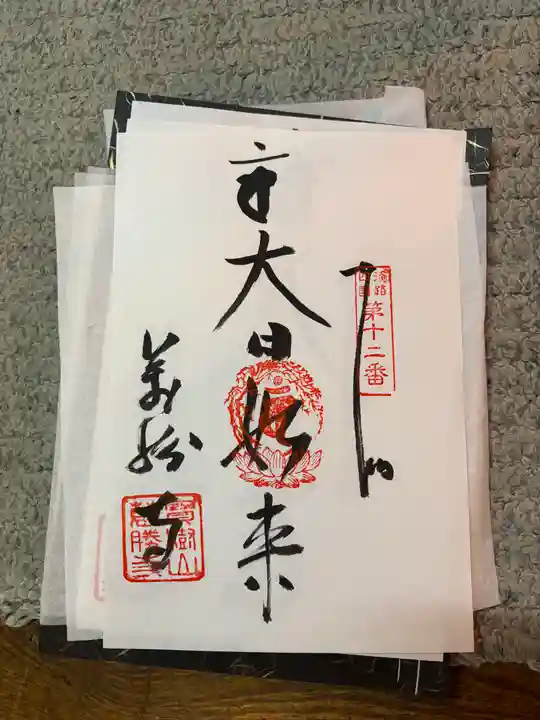 淡路
四国
第十二番
大日如来
萬勝寺
寶樹山
萬勝寺